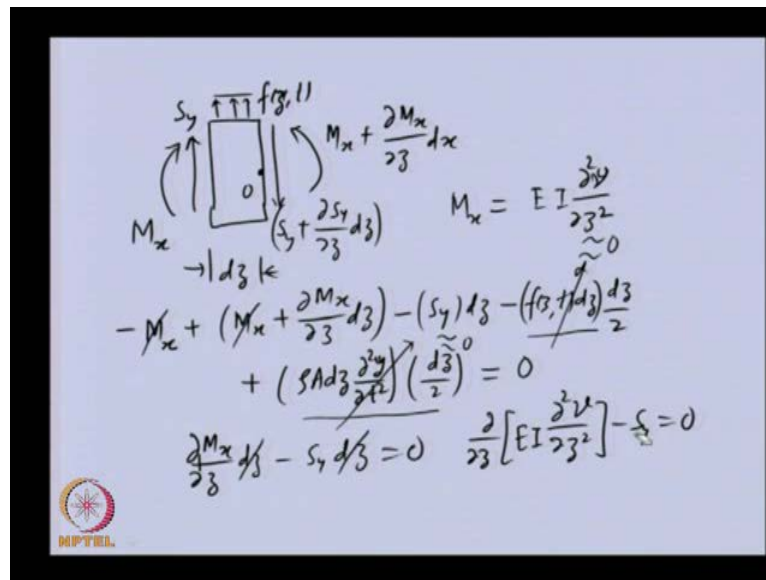 S_y f(z,t)
M_x + ∂M_x/∂z dx
O
M_x (S_y + ∂S_y/∂z dz) M_x = EI ∂²v/∂z²
→| dz |←
≈ 0
- M_x + (M_x + ∂M_x/∂z dz) - (S_y) dz - (f(z,t) dz) dz/2
≈ 0
+ (ρA dz ∂²v/∂t²) (dz/2) = 0
∂M_x/∂z dz - S_y dz = 0 ∂/∂z [EI ∂²v/∂z²] - S = 0
NPTEL